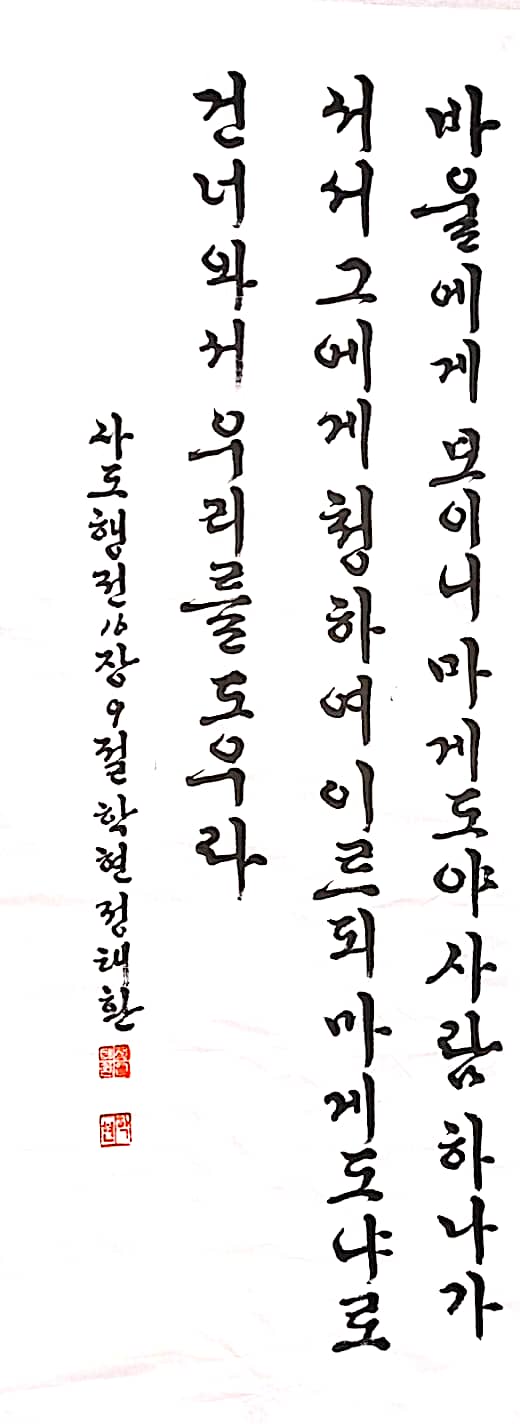 바울에게 보이니 마게도야 사람 하나가
서서 그에게 청하여 이르되 마게도냐로
건너와서 우리를 도우라
사도행전 16장 9절 학현 정태환